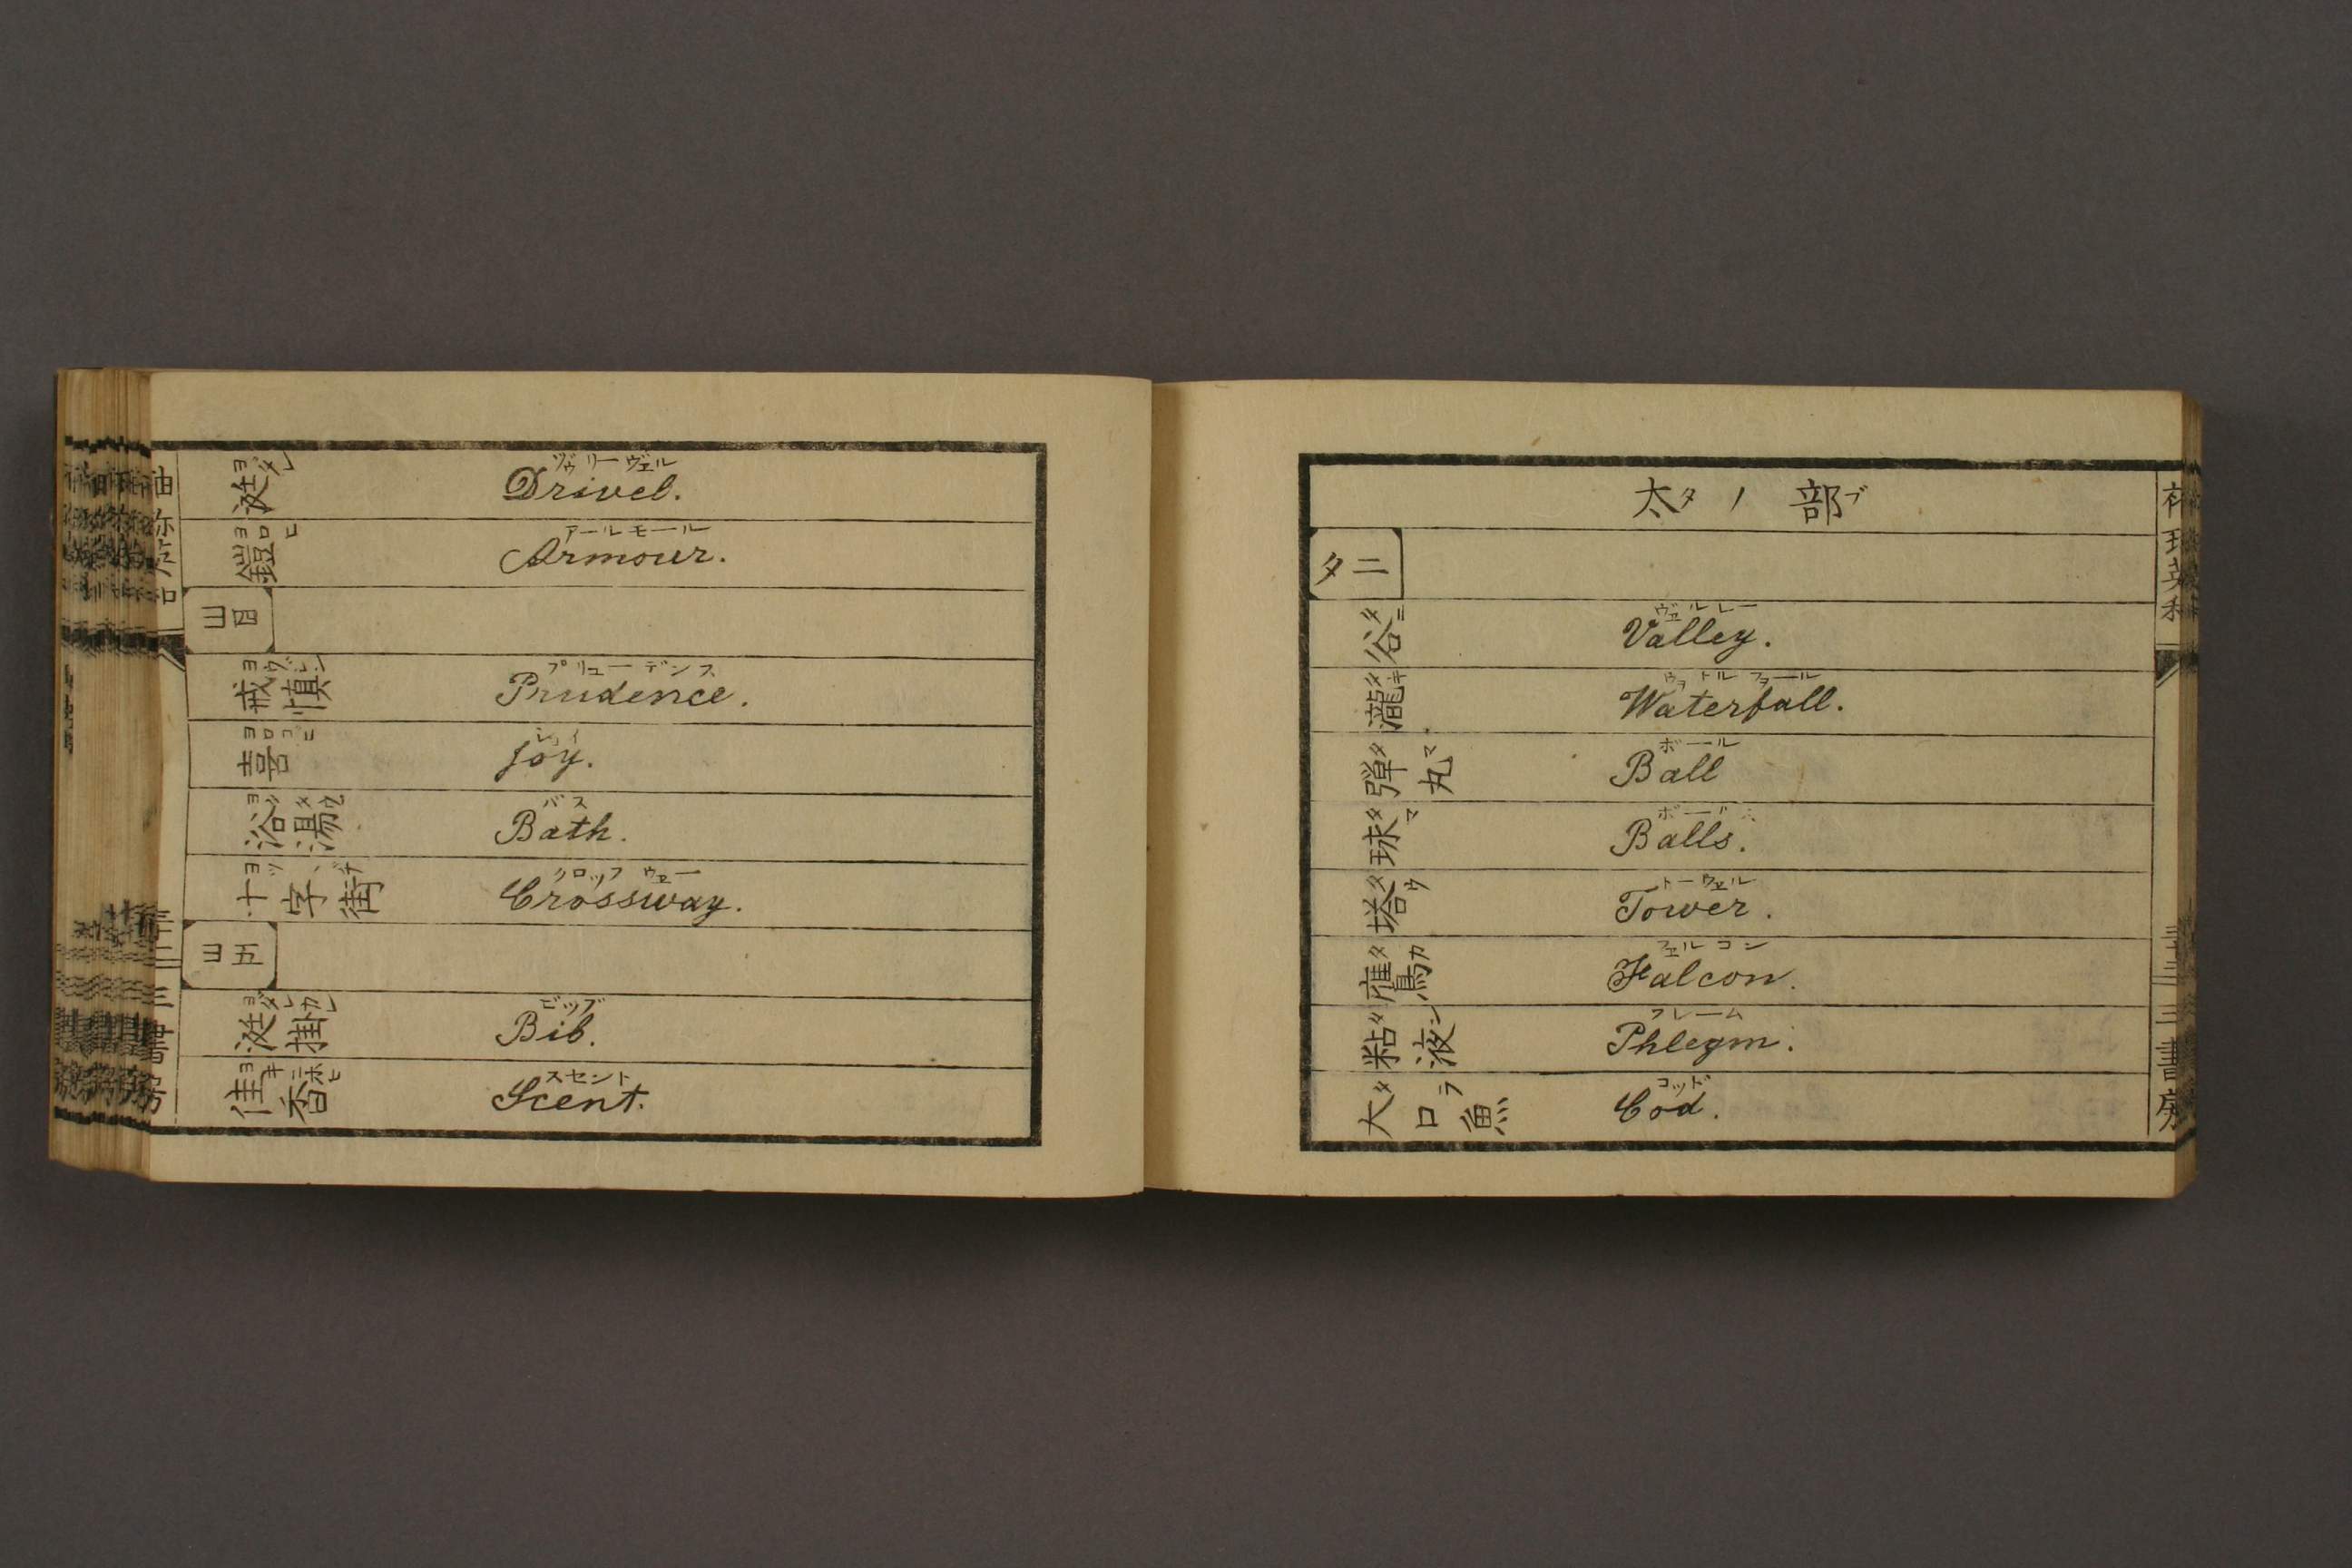 涎 ヨダレ Drivel. ヅゥリーヴェル
鎧 ヨロヒ Armour. アールモール
ヨ四
戒慎 ヨウジン Prudence. プリューデンス
喜 ヨロコヒ Joy. ジョイ
浴湯 Bath. バス
十字街 Crossway.
ヨ五
涎掛 Bib. ビッブ
佳香 ヨキニホヒ Scent. スセント
太タノ部ブ
タ二
谷 タニ Valley. ヴェルレー
瀧 タキ Waterfall. ウヲトルフヲール
弾丸 タマ Ball ボール
球 タマ Balls.
塔 タウ Tower. トーウェル
鷹 タカ Falcon. フェルコン
粘液 タン Phlegm. フレーム
大口魚 タラ Cod. コッド
三書房